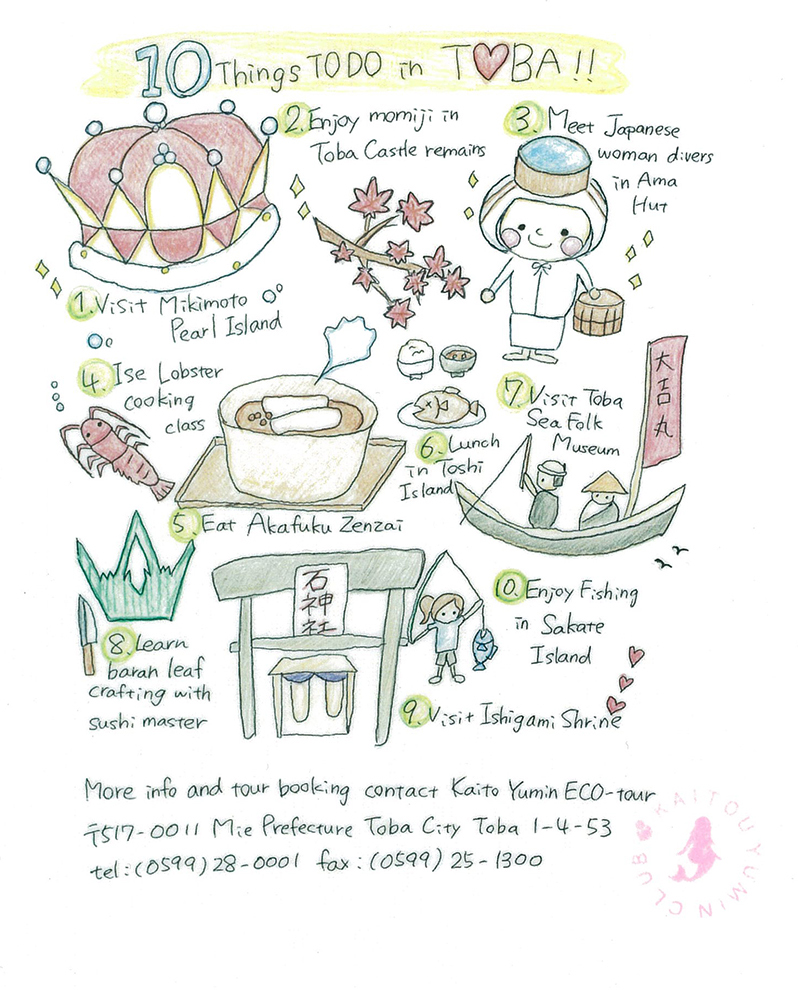 10 Things TO DO in T♥BA!!
1. Visit Mikimoto
Pearl Island
2. Enjoy momiji in
Toba Castle remains
3. Meet Japanese
woman divers
in Ama
Hut
4. Ise Lobster
cooking
class
5. Eat Akafuku Zenzai
6. Lunch
in Toshi
Island
7. Visit Toba
Sea Folk
Museum
大吉丸
8. Learn
baran leaf
crafting with
sushi master
石神社
9. Visit Ishigami Shrine
10. Enjoy Fishing
in Sakate
Island
More info and tour booking contact Kaito Yumin ECO-tour
〒517-0011 Mie Prefecture Toba City Toba 1-4-53
tel:(0599)28-0001 fax:(0599)25-1300
KAITOU YUMIN CLUB